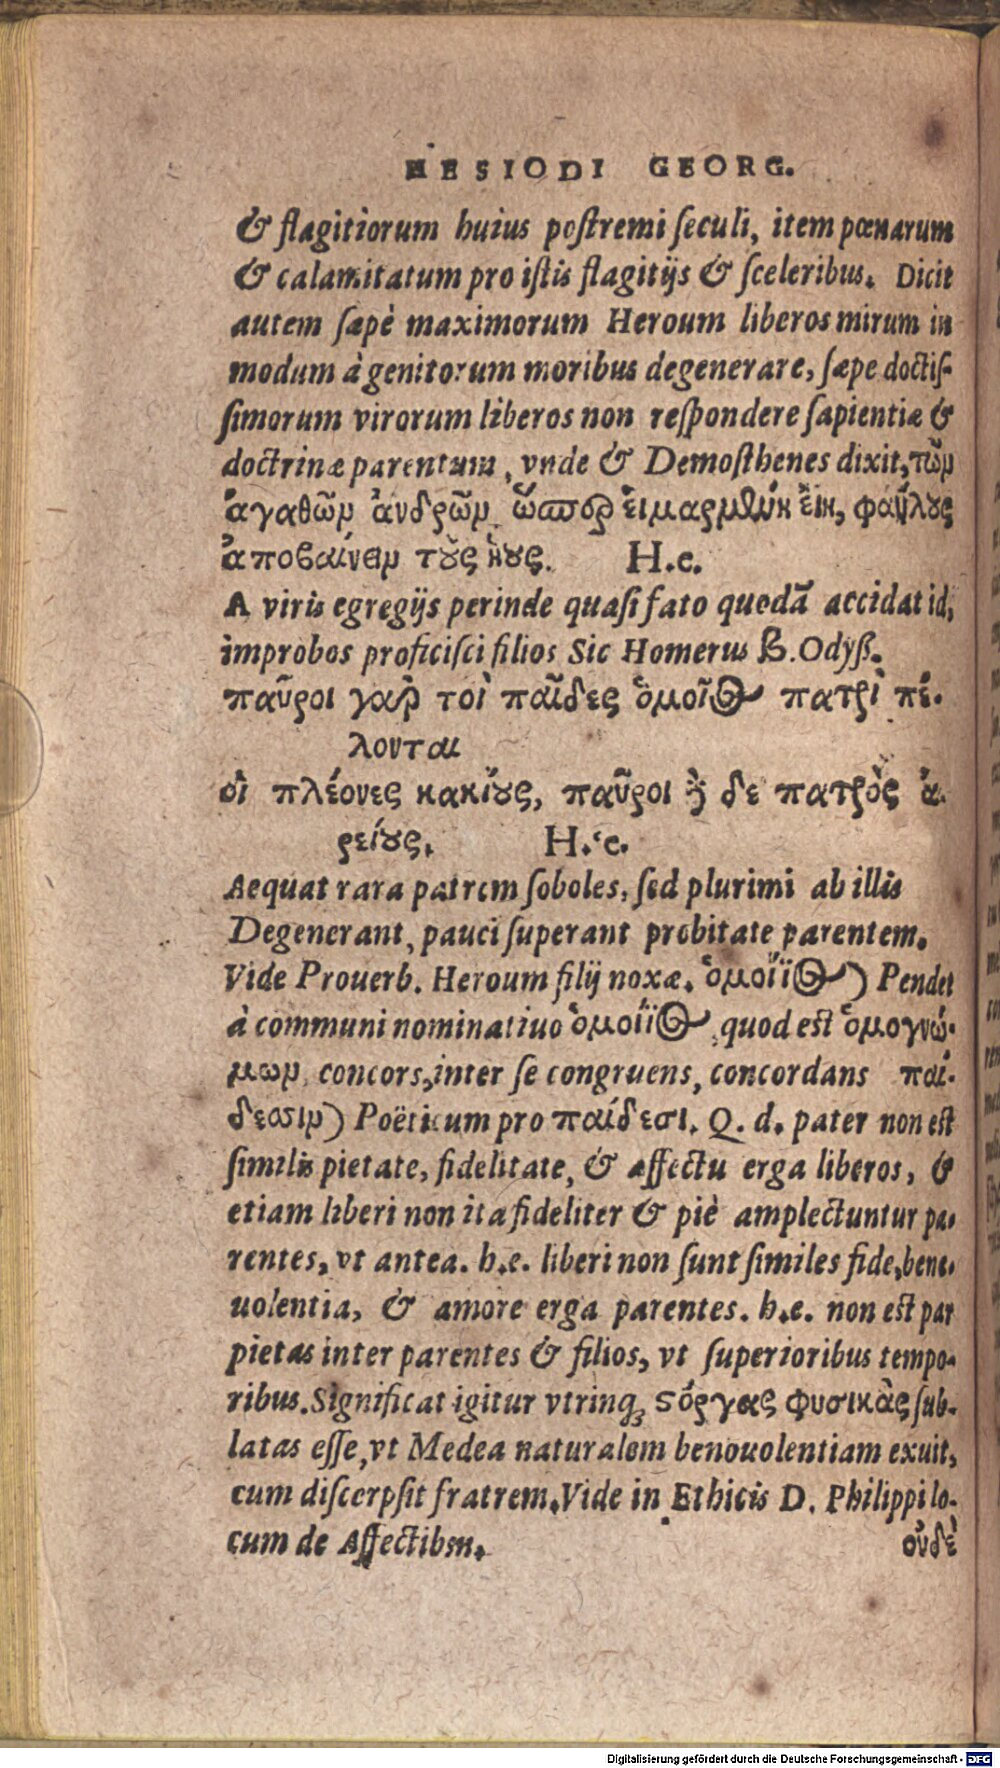 HESIODI GEORG.
& flagitiorum huius postremi seculi, item pœnarum
& calamitatum pro istis flagitijs & sceleribus. Dicit
autem sæpè maximorum Heroum liberos mirum in
modum à genitorum moribus degenerare, sæpe doctis-
simorum virorum liberos non respondere sapientiæ &
doctrinæ parentum, vnde & Demosthenes dixit, τῶν
ἀγαθῶν ἀνδρῶν ὥσπερ εἱμαρμένη ἔιη, φαύλους
ἀποβαίνειν τοὺς ἡους. H.e.
A viris egregijs perinde quasi fato quodã accidat id,
improbos proficisci filios Sic Homerus β. Odyß.
παῦροι γαρ τοὶ παῖδες ὁμοῖοι πατρὶ πέ-
λονται
οἱ πλέονες κακίους, παῦροι δὲ δε πατρὸς ἀ-
ρείους. H.e.
Aequat rara patrem soboles, sed plurimi ab illis
Degenerant, pauci superant probitate parentem.
Vide Prouerb. Heroum filij noxæ. ὁμοίϊος) Pendet
à communi nominatiuo ὁμοίϊος, quod est ὁμογνώ-
μων, concors, inter se congruens, concordans παί-
δεσσιν) Poëticum pro παίδεσι. Q. d. pater non est
similis pietate, fidelitate, & affectu erga liberos, &
etiam liberi non ita fideliter & piè amplectuntur pa-
rentes, vt antea. h.e. liberi non sunt similes fide, bene-
uolentia, & amore erga parentes. h.e. non est par
pietas inter parentes & filios, vt superioribus tempo-
ribus. Significat igitur vtrinq; στόργας φυσικὰς sub-
latas esse, vt Medea naturalem beneuolentiam exuit,
cum discerpsit fratrem. Vide in Ethicis D. Philippi lo-
cum de Affectibus.
οὐδὲ
Digitalisierung gefördert durch die Deutsche Forschungsgemeinschaft - DFG